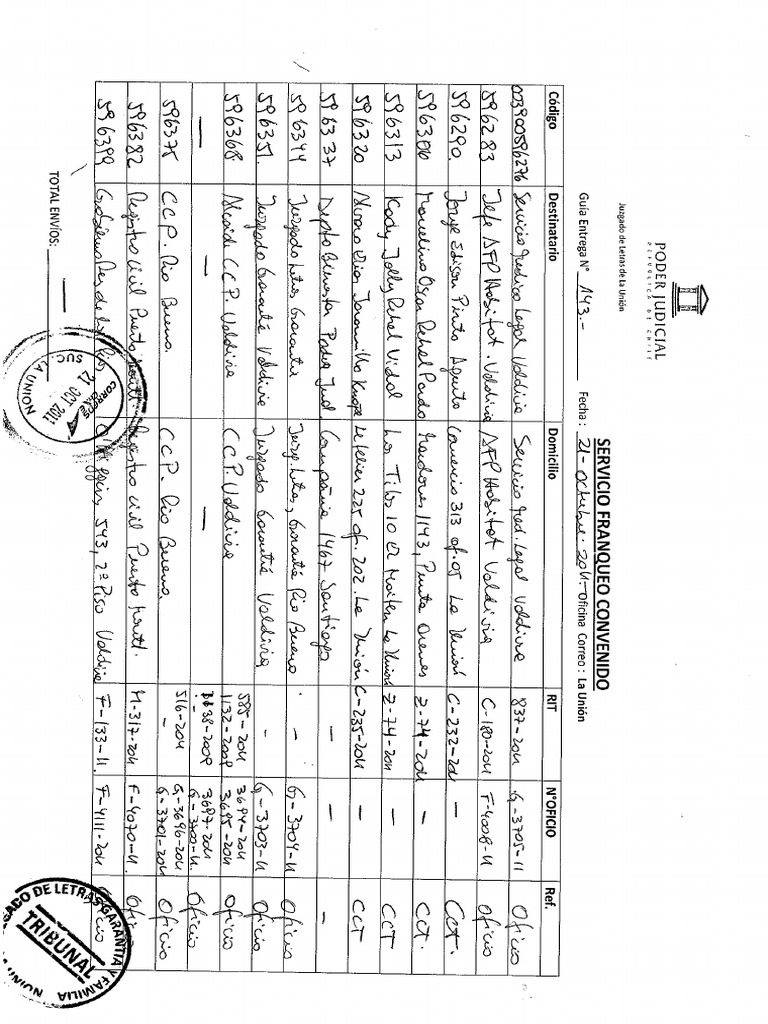 PODER JUDICIAL
REPUBLICA DE CHILE
Juzgado de Letras de La Unión
SERVICIO FRANQUEO CONVENIDO
Guía Entrega N° 143.- Fecha: 21-octubre-2011.- Oficina Correo: La Unión
Código Destinatario Domicilio RIT N°OFICIO Ref.
003900596276 Servicio Medico Legal Valdivia Servicio Med. Legal Valdivia 837-2011 G-3705-11 Oficio
596283 Jefe AFP Habitat. Valdivia AFP Habitat Valdivia C-180-2011 F-4008-11 Oficio
596290 Jorge Edison Pinto Agurto Comercio 313 of. 05 La Unión C-232-2011 — CCT.
596306 Marcelino Oscar Rehel Pardo Mardones 1143, Punta Arenas Z-74-2011 — CCT.
596313 Kady Jolly Rehel Vidal Los Tilos 10 El Maiten La Unión Z-74-2011 — CCT
596320 Alvaro Elias Jaramillo Letelier 225 of. 202. La Unión C-235-2011 — CCT
596337 Depto Bienestar Poder Jud Compañia 1467 Santiago — — —
596344 Juzgado Letras Garantia Juzg. Letras, Garantía Rio Bueno — G-3704-11 Oficio
596351. Juzgado Garantía Valdivia Juzgado Garantía Valdivia — G-3703-11 Oficio
596368 Alcaide C.C.P. Valdivia C.C.P. Valdivia 585-2011 1132-2009 3694-2011 3695-2011 Oficio
— — — 38-2009 3697-2011 G-3700-11. Oficio
596375 C.C.P. Rio Bueno C.C.P. Rio Bueno 516-2011 — G-3696-2011 G-3701-2011 Oficio
596382 Registro Civil Puerto Montt. Registro Civil Puerto Montt. M-317-2011 F-4070-11. Oficio
596399 O'Higgins 543, 2° Piso Valdivia F-133-11. F-4111-2011 Oficio
TOTAL ENVÍOS: —
CORREOS
CHILE
21 OCT 2011
SUC. LA UNION
JUZGADO DE LETRAS GARANTIA Y FAMILIA
TRIBUNAL
LA UNION